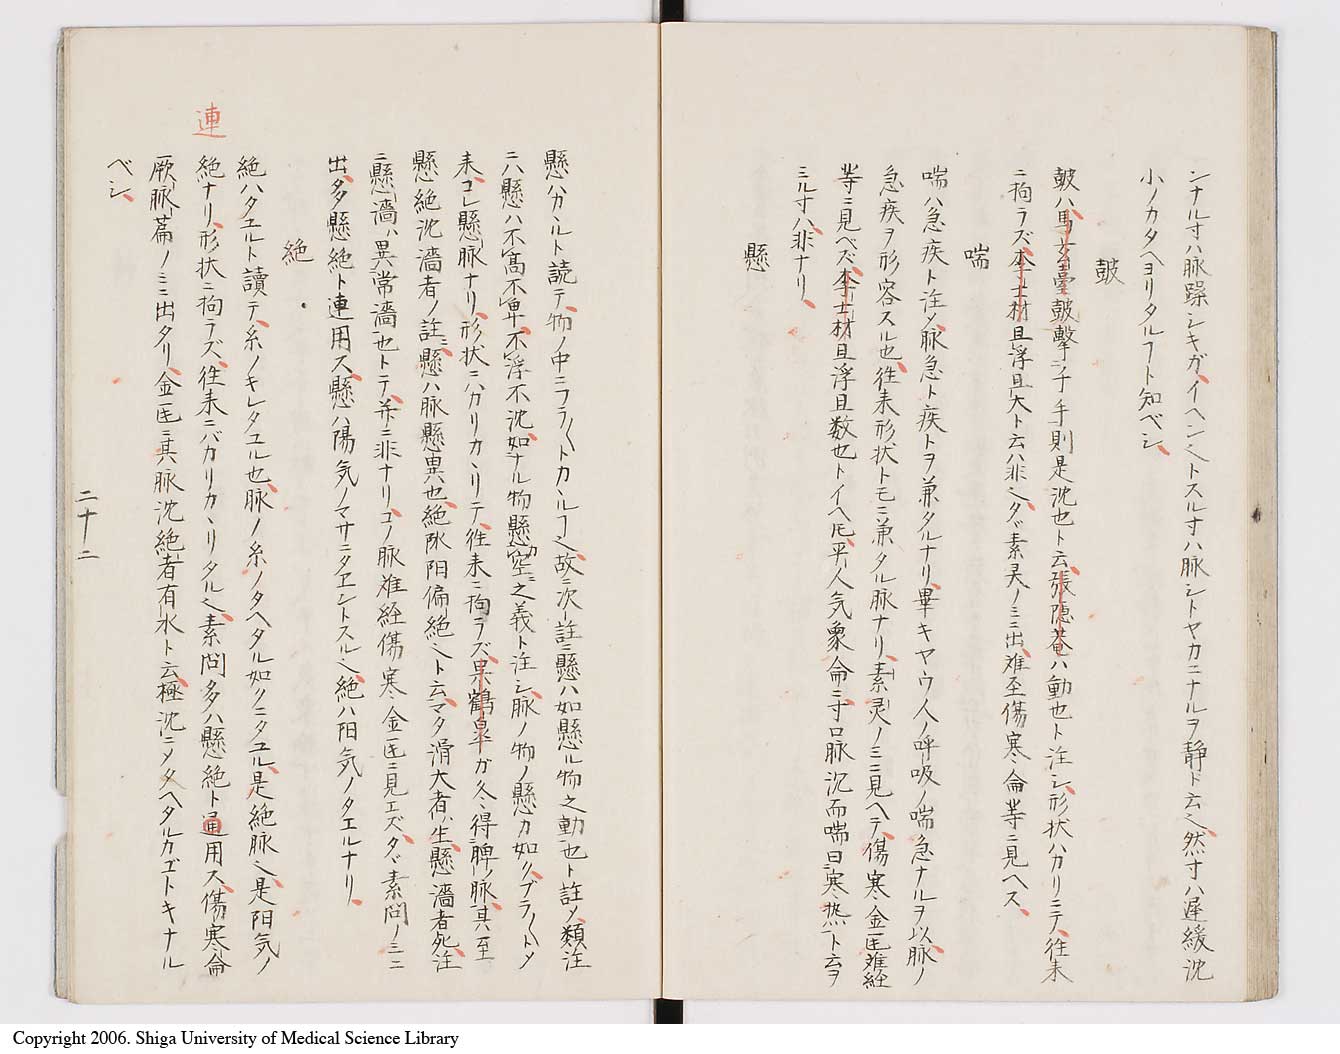 シナル寸ハ脉躁シキガ、イヘン〻トスル寸ハ脉シトヤカニナルヲ静ト云〻、然寸ハ遅緩沈
小ノカタヘヨリタルヿト知ベシ、
皷
皷ハ馬玄臺皷撃于手則是沈也ト云、張隠菴ハ動也ト注シ、形状ハカリニテ、往来
ニ拘ラズ、李士材且浮且大ト云ハ非〻、タヾ素灵ノミニ出、难至傷寒侖䒭ニ見ヘス、
喘
喘ハ急疾ト注ノ、脉急ト疾トヲ兼タルナリ、畢キヤウ人ノ呼吸ノ喘急ナルヲ以、脉ノ
急疾ヲ形容スル也、徃来形状トモニ兼タル脉ナリ、素灵ノミニ見ヘテ、傷寒金匡难経
䒭ニ見ヘズ、李士材且浮且数也トイヘ𪜈、平人気象侖ニ寸口脉沉而喘曰寒熱ト云ヲ
ミル寸ハ非ナリ、
懸
懸ハカヽルト読テ、物ノ中ニフラ〳〵トカヽルヿ〻、故ニ次註ニ懸ハ如懸ル物之動也ト註〆、類注
ニハ懸ハ不高不卑、不浮不沈、如ナル物懸空ニ之義ト注シ、脉ノ物ノ懸カ如ク、ブラ〳〵ト〆
来、コレ懸脉ナリ、形状ニハカリカヽリテ、徃来ニ拘ラズ、呉鶴皐ガ久得脾脉、其至
懸絶沈濇者ノ註ニ、懸ハ脉懸異也、絶阦阳偏絶〻ト云、マタ滑大者ハ生、懸濇者死、注
ニ懸濇ハ異常濇也トテ、并ニ非ナリ、コノ脉难経傷寒金匡ニ見エズ、タヾ素問ノミニ
出、多懸絶ト連用ス、懸ハ陽気ノマサニタヱントスル〻、絶ハ阳気ノタエルナリ、
絶
絶ハタユルト讀テ、糸ノキレタユル也、脉ノ糸ノタヘタル如クニタユル、是絶脉〻、是阳気ノ
絶ナリ、形状ニ拘ラズ、徃来ニバカリカヽリタル〻、素問多ハ懸絶ト通用ス、傷寒侖
連
厥脉篇ノミニ出タリ、金匡ニ其脉沈絶者有水ト云、極沈ニ〆タヘタルカゴトキナル
ベシ、
二十二
Copyright 2006. Shiga University of Medical Science Library